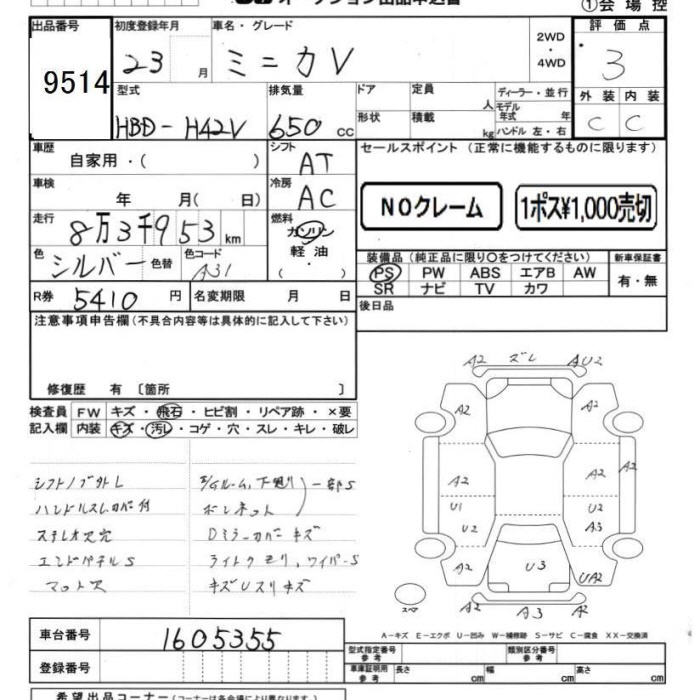 オークション出品申込書
①会場控
出品番号
9514
初度登録年月
23 月
車名・グレード
ミニカV
2WD
・
4WD
評価点
3
外装 内装
C C
型式
HBD-H42V
排気量
650 cc
ドア
形状
定員 人
積載 kg
ディーラー・並行
モデル年式 年
ハンドル 左・右
車歴
自家用・( )
シフト
AT
車検
年 月( 日)
冷房
AC
走行
8万3千953 km
燃料
ガソリン
軽油
・( )
色
シルバー
色替
色コード
A31
R券
5410 円
名変期限 月 日
セールスポイント (正常に機能するものに限ります)
NOクレーム
1ポス¥1,000売切
装備品 (純正品に限り○をつけてください)
新車保証書
PS PW ABS エアB AW
SR ナビ TV カワ
有・無
後日品
注意事項申告欄(不具合内容等は具体的に記入して下さい)
修復歴 有 〔箇所 〕
検査員 記入欄
FW キズ・飛石・ヒビ割・リペア跡・×要
内装 キズ・汚レ・コゲ・穴・スレ・キレ・破レ
シフトノブ外レ
ハンドルスレカバー付
ステレオ欠穴
エンドパネルS
マット欠
E/Gルーム、下廻り
ボンネット
一部S
Dミラーカバーキズ
ライトクモリ、ワイパーS
キズUスリキズ
A2 ズレ AU2
A2 A2
A2 A2 A2
U1 U2
U2 A3
A2 U3 UA2
スペア
A2 A3 A2
A-キズ E-エクボ U-凹み W-補修跡 S-サビ C-腐食 XX-交換済
車台番号
1605355
登録番号
型式指定番号 参考
類別区分番号 参考
車庫証明用 参考
長さ cm 幅 cm 高さ cm
希望出品コーナー(コーナーは各会場により異なります)